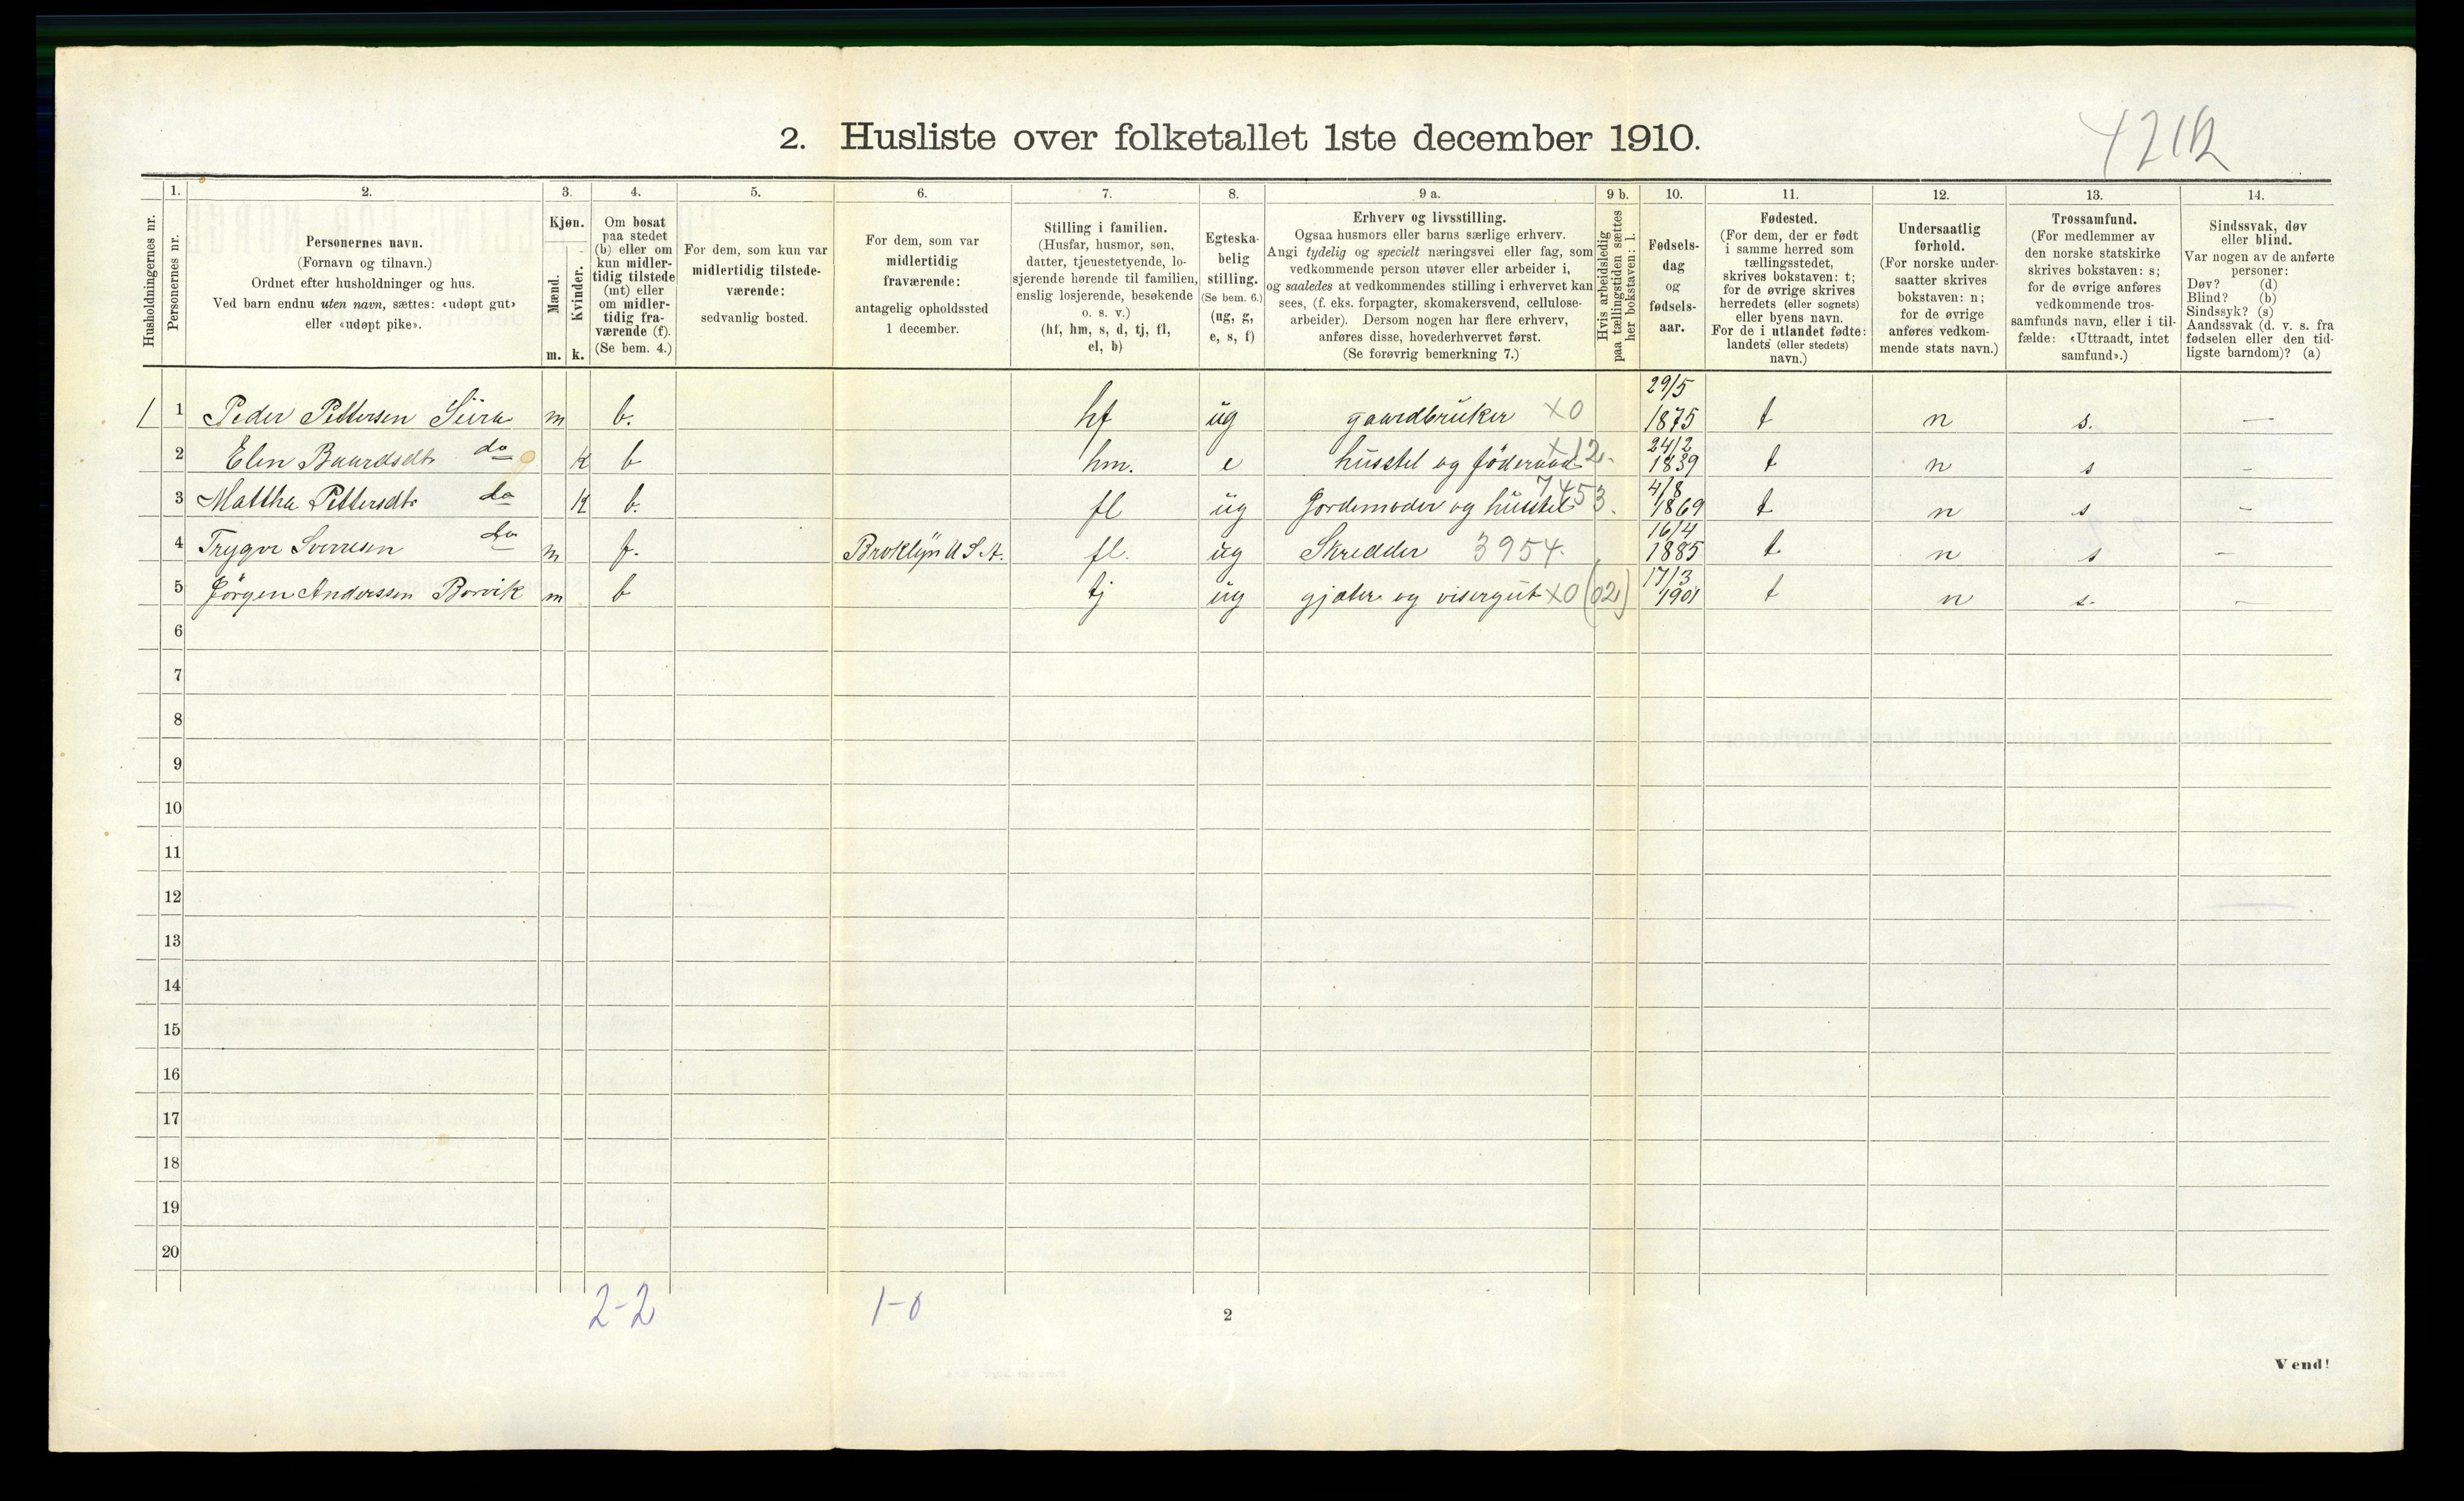 2. Husliste over folketallet 1ste december 1910.
1. 2. 3. 4. 5. 6. 7. 8. 9 a. 9 b. 10. 11. 12. 13. 14.
Husholdningernes nr.
Personernes nr.
Personernes navn.
(Fornavn og tilnavn.)
Ordnet efter husholdninger og hus.
Ved barn endnu uten navn, sættes: «udøpt gut»
eller «udøpt pike».
Kjøn.
Mænd.
Kvinder.
m. k.
Om bosat
paa stedet
(b) eller om
kun midler-
tidig tilstede
(mt) eller
om midler-
tidig fra-
værende (f).
(Se bem. 4.)
For dem, som kun var
midlertidig tilstede-
værende:
sedvanlig bosted.
For dem, som var
midlertidig
fraværende:
antagelig opholdssted
1 december.
Stilling i familien.
(Husfar, husmor, søn,
datter, tjenestetyende, lo-
sjerende hørende til familien,
enslig losjerende, besøkende
o. s. v.)
(hf, hm, s, d, tj, fl,
el, b)
Egteska-
belig
stilling.
(Se bem. 6.)
(ug, g,
e, s, f)
Erhverv og livsstilling.
Ogsaa husmors eller barns særlige erhverv.
Angi tydelig og specielt næringsvei eller fag, som
vedkommende person utøver eller arbeider i,
og saaledes at vedkommendes stilling i erhvervet kan
sees, (f. eks. forpagter, skomakersvend, cellulose-
arbeider). Dersom nogen har flere erhverv,
anføres disse, hovederhvervet først.
(Se forøvrig bemerkning 7.)
Hvis arbeidsledig
paa tællingstiden sættes
her bokstaven: l.
Fødsels-
dag
og
fødsels-
aar.
Fødested.
(For dem, der er født
i samme herred som
tællingsstedet,
skrives bokstaven: t;
for de øvrige skrives
herredets (eller sognets)
eller byens navn.
For de i utlandet fødte:
landets (eller stedets)
navn.)
Undersaatlig
forhold.
(For norske under-
saatter skrives
bokstaven: n;
for de øvrige
anføres vedkom-
mende stats navn.)
Trossamfund.
(For medlemmer av
den norske statskirke
skrives bokstaven: s;
for de øvrige anføres
vedkommende tros-
samfunds navn, eller i til-
fælde: «Uttraadt, intet
samfund».)
Sindssvak, døv
eller blind.
Var nogen av de anførte
personer:
Døv? (d)
Blind? (b)
Sindssyk? (s)
Aandssvak (d. v. s. fra
fødselen eller den tid-
ligste barndom)? (a)
1 1 Peder Pettersen m b. hf ug gaardbruker X0 29/5 1875 t n s. —
2 Elen Baardsdtr do k b hm. e husstel og føderaad X12. 24/2 1839 t n s –
3 Mattha Pettersdtr do k b. fl ug Jordemoder og husstel 7453. 4/8 1869 t n s –
4 Trygve Sverresen do m f. Broklyn U S A. fl. ug Skredder 3954. 16/4 1885 t n s –
5 Jörgen Anderssen Borvik m b tj ug gjæter og visergut X0 (02) 17/3 1901 t n s. –
6
7
8
9
10
11
12
13
14
15
16
17
18
19
20
2-2 1-0
2
Vend!